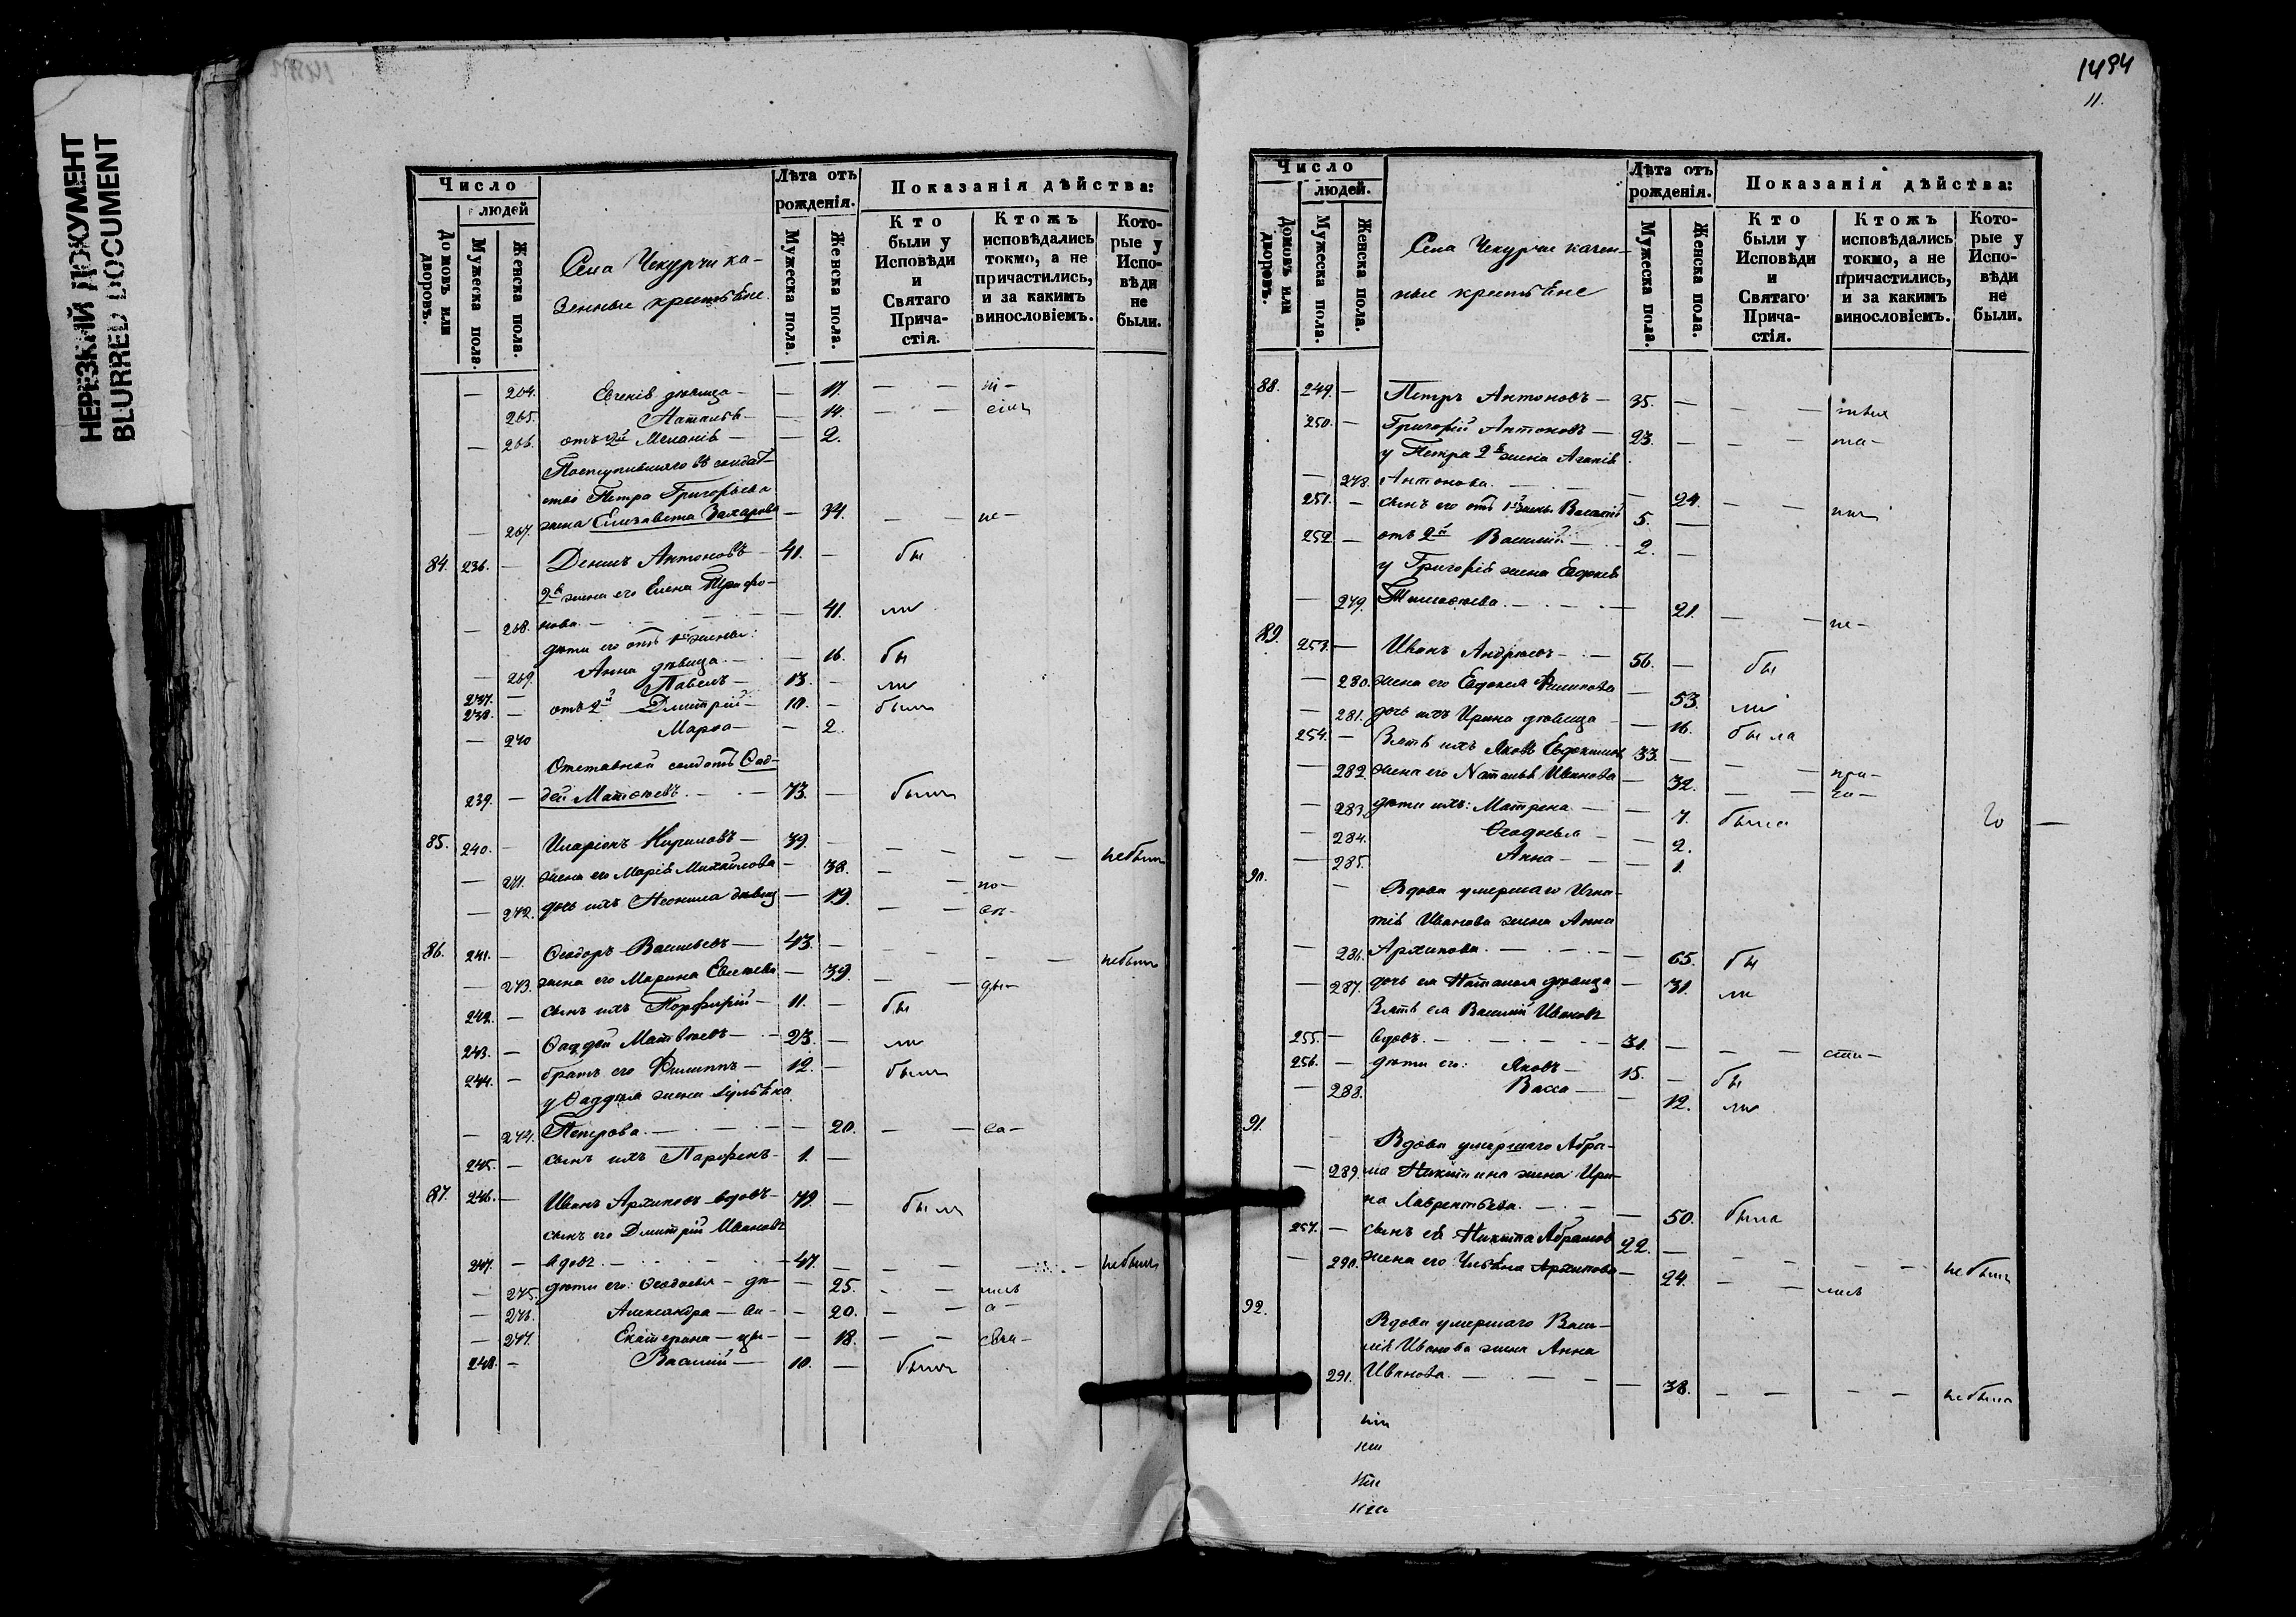 НЕРЕЗКИЙ ДОКУМЕНТ
BLURRED DOCUMENT
Число
людей
Домовъ или дворовъ.
Мужеска пола.
Женска пола.
Села Чекурчи ка-
зенные крестьѣне.
Лѣта отъ
рожденія.
Мужеска пола.
Женска пола.
Показанія дѣйства:
Кто были у Исповѣди и Святаго Прича-стія.
Ктожъ исповѣдались токмо, а не причастились, и за какимъ винословіемъ.
Кото-рые у Испо-вѣди не были.
— 204. Евгенія дѣвица — — 17. — —
265. Наталья — — 14. — —
— 266. отъ 2й Меланія — — 2.
Поступившаго въ солдат-
ство Петра Григорьева
— 267. жена Елизавета Захарова — 34. — — не-
84. 236. — Денисъ Антоновъ — 41. — бы
2я жена его Елена Трифо-
— 268. нова — — 41. ли
дѣти его отъ 1й жены:
— 269. Анна дѣвица — — 16. бы
237. — Павелъ — 13. — ли
238. — отъ 2й Дмитрій — 10. — были
— 270 Марѳа — — 2.
Отставной солдатъ Ѳад-
239. — дей Матвѣевъ — 73. — былъ
85. 240. — Иларіонъ Кириловъ — 39. — — — — — небылъ
— 271. жена его Марія Михайлова — 38. — — по-
— 272. дочь ихъ Неонила дѣвица — 19. — —
86. 241. — Ѳеодоръ Васильевъ — 43. — — — — — небылъ
— 273. жена его Марина Евсѣева — 39. — —
242. — сынъ ихъ Порфирій — 11. — бы
243. — Ѳаддей Матвѣевъ — 23. — ли
244. — братъ его Филиппъ — 12. — былъ
у Ѳаддея жена Іульѣна
— 274. Петрова — — 20. — —
245. — сынъ ихъ Парѳенъ — 1. —
87. 246. — Иванъ Архиповъ вдовъ — 79. — былъ
сынъ его Дмитрій Ивановъ
247. — вдовъ — 47. — — — — — небылъ
— 275. дѣти его: Ѳеодосія — дѣ — — 25. — —
— 276. Александра — ви — — 20. — —
— 277. Екатерина — цы — — 18. — —
248. — Василій — 10. — былъ
1494
11.
Число
людей.
Домовъ или дворовъ.
Мужеска пола.
Женска пола.
Села Чекурчи казен-
ные крестьѣне
Лѣта отъ
рожденія.
Мужеска пола.
Женска пола.
Показанія дѣйства:
Кто были у Исповѣди и Святаго Прича-стія.
Ктожъ исповѣдались токмо, а не причастились, и за какимъ винословіемъ.
Кото-рые у Испо-вѣди не были.
88. 249. — Петръ Антоновъ — 35. — — —
250. — Григорій Антоновъ — 23. — — —
у Петра 2я жена Агапія
— 278. Антонова — — 24. — —
251. — сынъ его отъ 1й жены Василій 5. —
252 — отъ 2й Василій — 2. —
у Григорія жена Евдокія
— 279. Тимоѳеева — — 21. — — не-
89. 253. — Иванъ Андреевъ — 56. — бы
— 280. жена его Евдокія Филипова — 53. ли
— 281. дочь ихъ Ирина дѣвица — 16. была
254. — Зять ихъ Яковъ Евдокимовъ 33. — — — при-
— 282 жена его Наталья Иванова — 32. — — ча-
— 283. дѣти ихъ: Матрена — — 7. была
— 284. Ѳеодосія — — 2.
— 285. Анна — — 1.
90. — Вдова умершаго Игна-
тія Иванова жена Анна
— 286. Архипова — — 65. бы
— 287. дочь ея Наталья дѣвица — 31. ли
Зять ея Василій Ивановъ
255. — вдовъ — 31. — — — сти-
256. — дѣти его: Яковъ — 15. — бы
— 288. Васса — — 12. ли
91. — Вдова умершаго Абра-
— 289. ма Никитина жена Ири-
на Лаврентьева — — 50. была
257. — сынъ ея Никита Абрамовъ 22. — — — — — небылъ
— 290. жена его Ульѣна Архипова — 24. — — лись
92. Вдова умершаго Васи-
лія Иванова жена Анна
291. Иванова — — 38. — — — — небыла